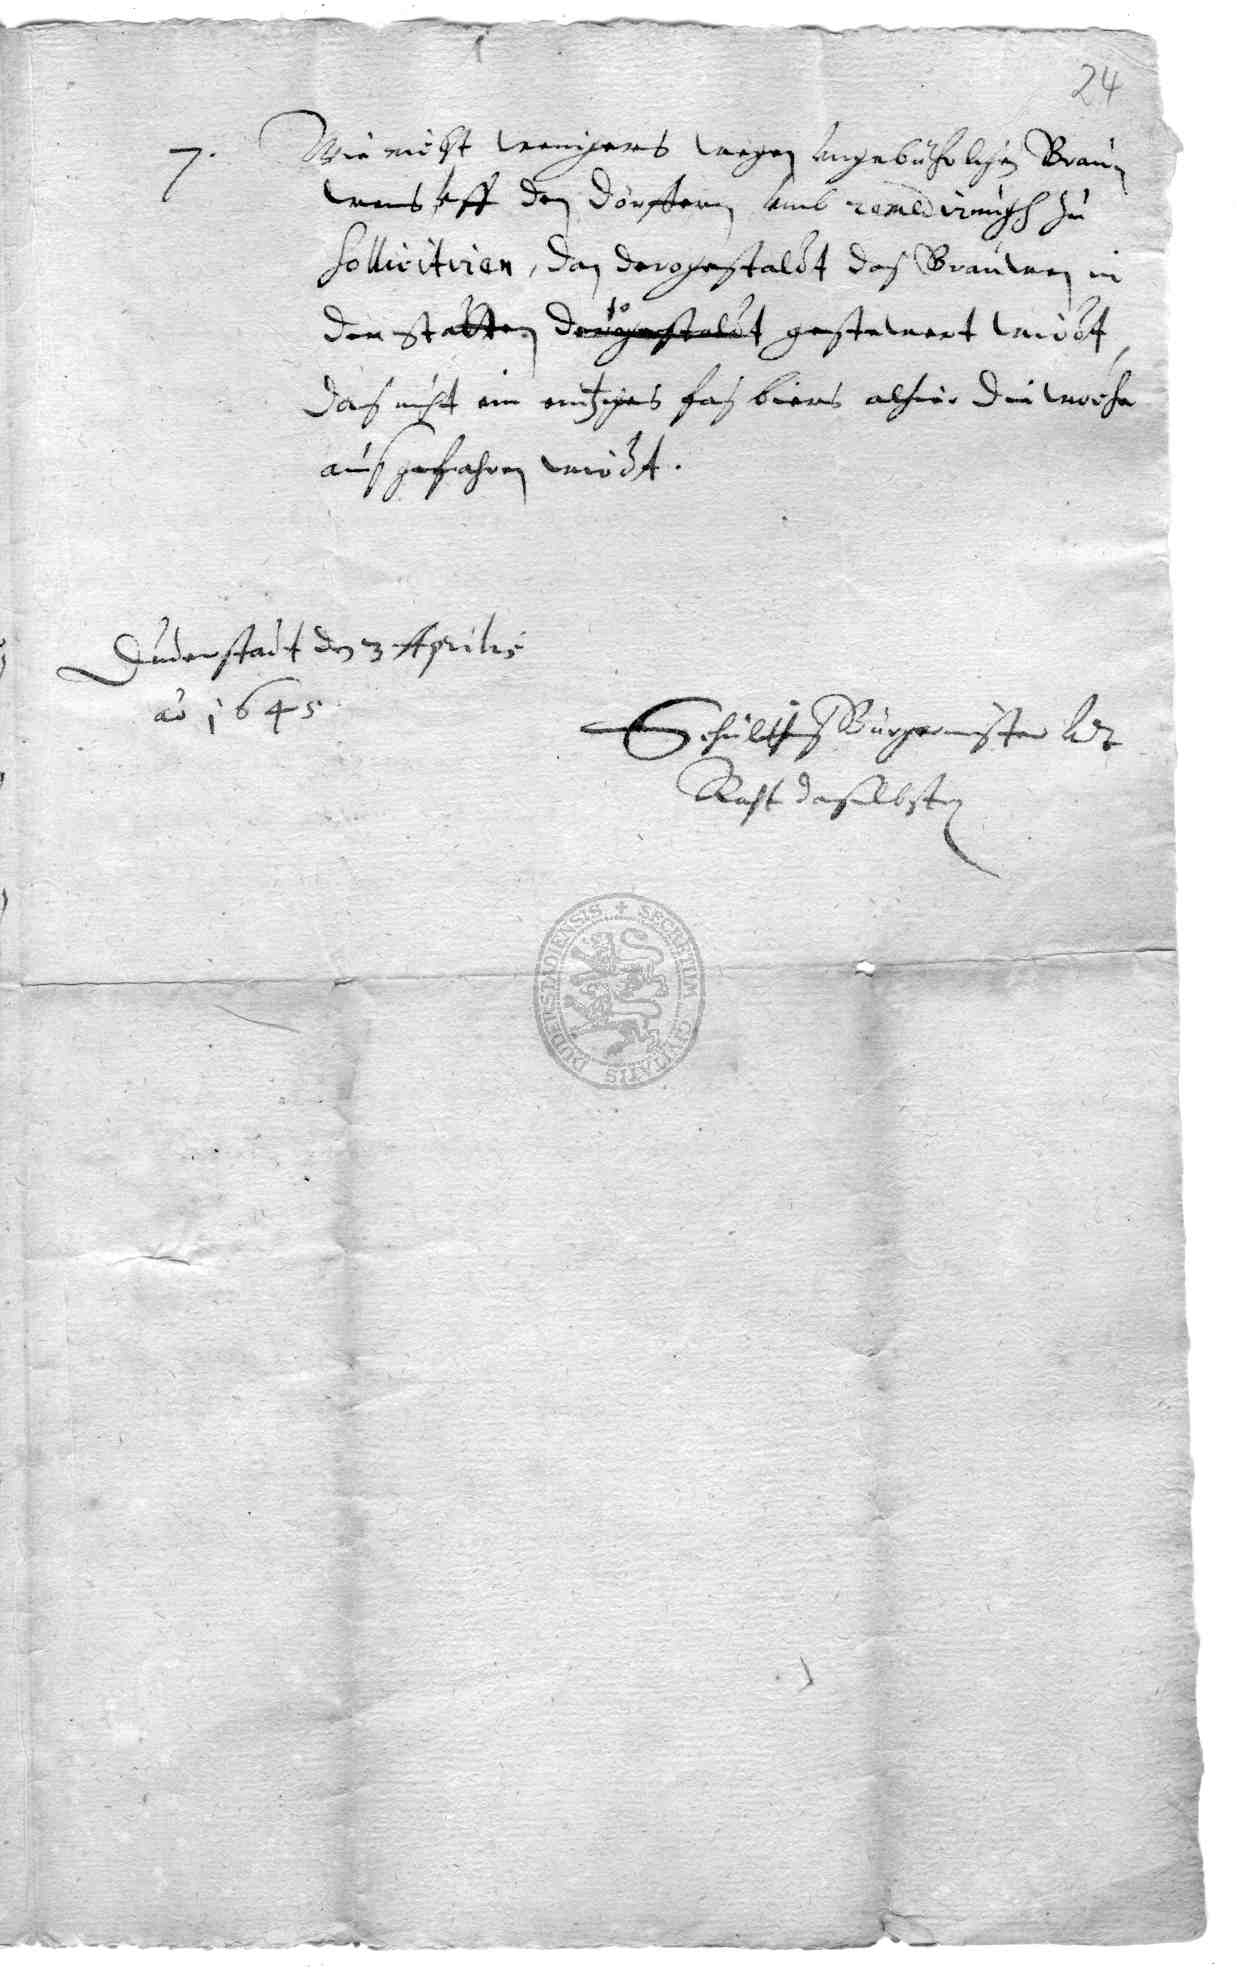 24
7. Wie nicht wenigers wegen ungebührlichen Brau
wens uff den Dörffern umb remedirungh zu
sollicitiren, dan derogestaldt das Brauwen in
den Stätten derogestaldt so gestewert wirdt,
das nicht ein eintziges fas biers alhier die woche
ausgefahren wirdt.
Duderstadt den 3 Aprilis
ao 1645
Schultheis Bürgermeister undt
Raht daselbsten
SECRETUM CIVITATIS DUDERSTADIENSIS